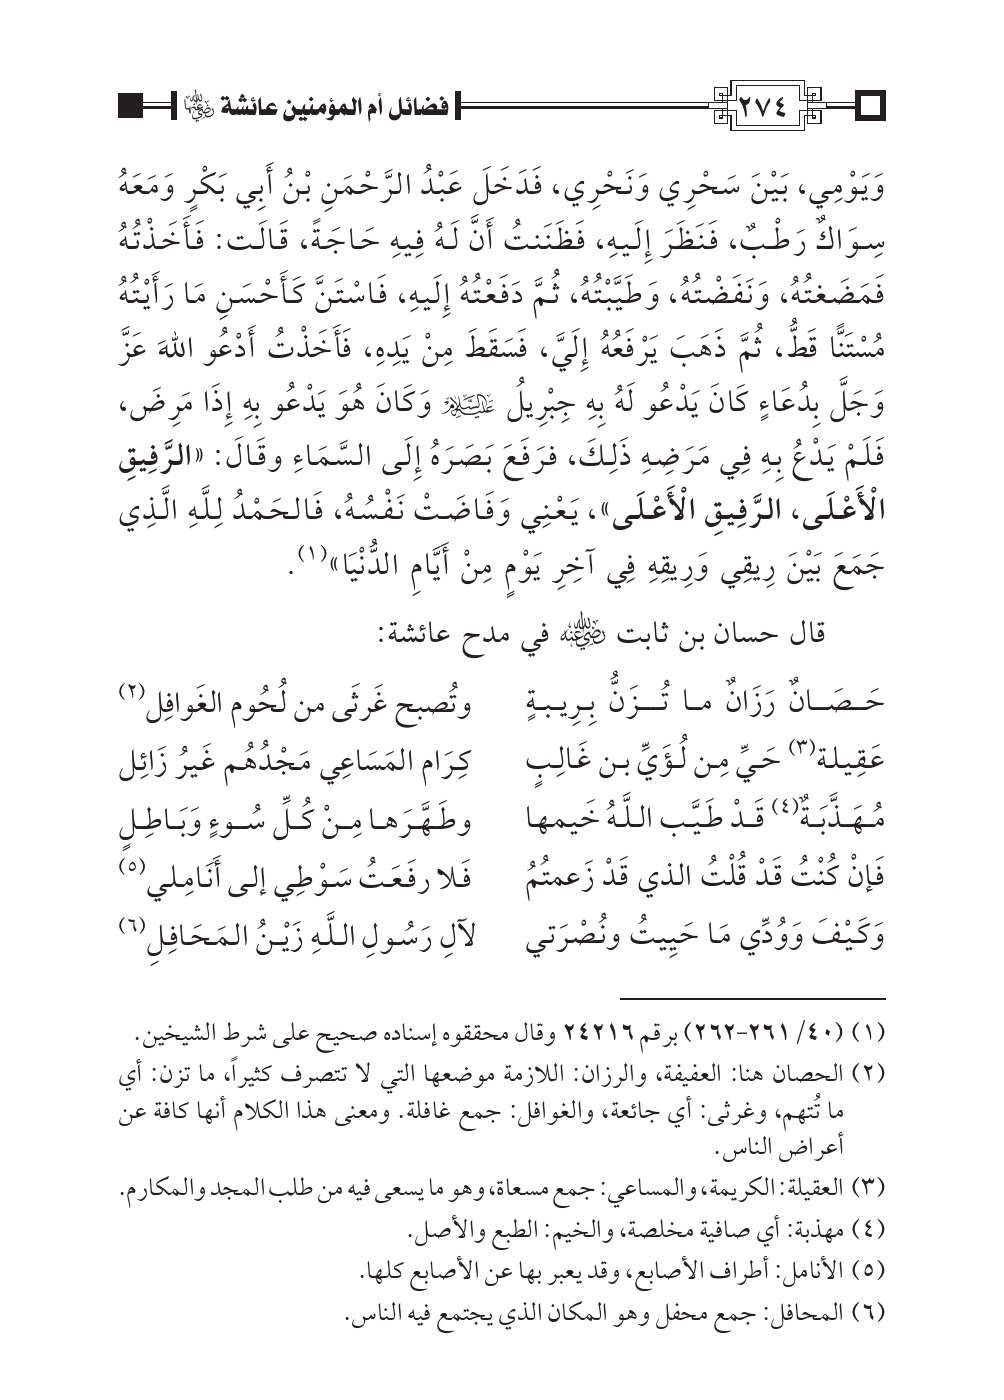 ٢٧٤ فضائل أم المؤمنين عائشة رضي الله عنها
وَيَوْمِي، بَيْنَ سَحْرِي وَنَحْرِي، فَدَخَلَ عَبْدُ الرَّحْمَنِ بْنُ أَبِي بَكْرٍ وَمَعَهُ
سِوَاكٌ رَطْبٌ، فَنَظَرَ إِلَيهِ، فَظَنَنتُ أَنَّ لَهُ فِيهِ حَاجَةً، قَالَت: فَأَخَذْتُهُ
فَمَضَغتُهُ، وَنَفَضْتُهُ، وَطَيَّبْتُهُ، ثُمَّ دَفَعْتُهُ إِلَيهِ، فَاسْتَنَّ كَأَحْسَنِ مَا رَأَيْتُهُ
مُسْتَنًّا قَطُّ، ثُمَّ ذَهَبَ يَرْفَعُهُ إِلَيَّ، فَسَقَطَ مِنْ يَدِهِ، فَأَخَذْتُ أَدْعُو اللهَ عَزَّ
وَجَلَّ بِدُعَاءٍ كَانَ يَدْعُو لَهُ بِهِ جِبْرِيلُ عليه السلام وَكَانَ هُوَ يَدْعُو بِهِ إِذَا مَرِضَ،
فَلَمْ يَدْعُ بِهِ فِي مَرَضِهِ ذَلِكَ، فرَفَعَ بَصَرَهُ إِلَى السَّمَاءِ وقَالَ: «الرَّفِيقِ
الْأَعْلَى، الرَّفِيقِ الْأَعْلَى»، يَعْنِي وَفَاضَتْ نَفْسُهُ، فَالحَمْدُ لِلَّهِ الَّذِي
جَمَعَ بَيْنَ رِيقِي وَرِيقِهِ فِي آخِرِ يَوْمٍ مِنْ أَيَّامِ الدُّنْيَا»(١).
قال حسان بن ثابت رضي الله عنه في مدح عائشة:
حَصَانٌ رَزَانٌ ما تُزَنُّ بِرِيبةٍ وتُصبح غَرثَى من لُحُوم الغَوافِل(٢)
عَقِيلة(٣) حَيِّ مِن لُؤَيِّ بن غَالِبٍ كِرَام المَسَاعِي مَجْدُهُم غَيرُ زَائِل
مُهَذَّبَةٌ(٤) قَدْ طَيَّب اللَّهُ خَيمها وطَهَّرَها مِنْ كُلِّ سُوءٍ وَبَاطِلٍ
فَإنْ كُنْتُ قَدْ قُلْتُ الذي قَدْ زَعمتُمُ فَلا رفَعَتُ سَوْطِي إلى أَنَامِلي(٥)
وَكَيْفَ وَوُدِّي مَا حَيِيتُ ونُصْرَتي لآلِ رَسُولِ اللَّهِ زَيْنُ المَحَافِلِ(٦)
(١) (٤٠/ ٢٦١-٢٦٢) برقم ٢٤٢١٦ وقال محققوه إسناده صحيح على شرط الشيخين.
(٢) الحصان هنا: العفيفة، والرزان: اللازمة موضعها التي لا تتصرف كثيراً، ما تزن: أي
ما تُتهم، وغرثى: أي جائعة، والغوافل: جمع غافلة. ومعنى هذا الكلام أنها كافة عن
أعراض الناس.
(٣) العقيلة: الكريمة، والمساعي: جمع مسعاة، وهو ما يسعى فيه من طلب المجد والمكارم.
(٤) مهذبة: أي صافية مخلصة، والخيم: الطبع والأصل.
(٥) الأنامل: أطراف الأصابع، وقد يعبر بها عن الأصابع كلها.
(٦) المحافل: جمع محفل وهو المكان الذي يجتمع فيه الناس.